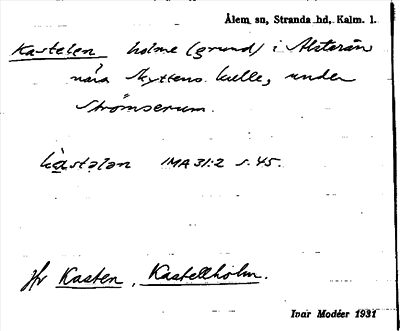 Ålem sn, Stranda hd, Kalm. l.
Kastelen holme (grund) i Alsterån
nära Skyttens kulle, under
Strömserum.
kàstələn IMA 31:2 s. 45.
Jfr Kasten, Kastellholm.
Ivar Modéer 1931